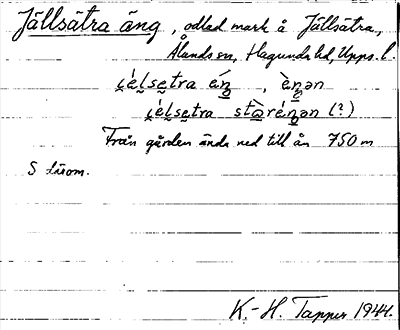 Jällsätra äng, odlad mark å Jällsätra,
Ålands sn, Hagunda hd, Upps. l.
i̯élsetra éŋ, èŋən
i̯élsetra stòréŋən (?)
Från gården ända ned till ån 750 m
S därom.
K.-H. Tapper 1944.